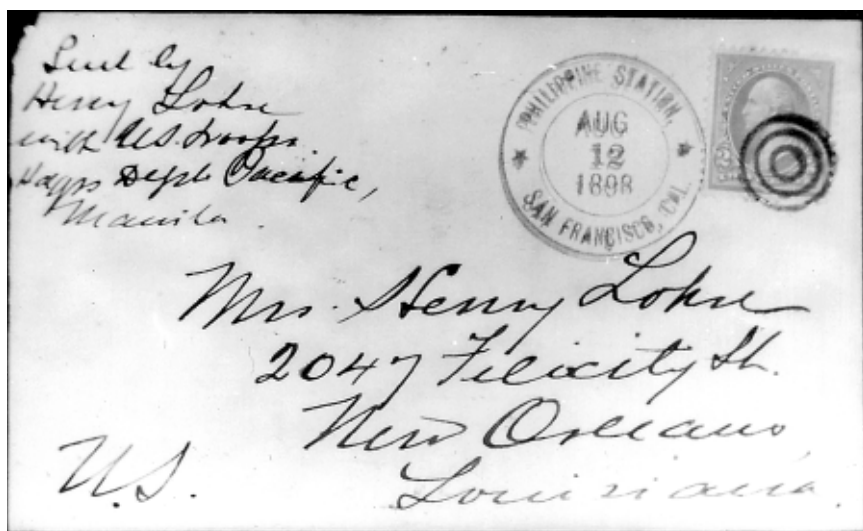 Sent by
Henry Lohse
with U.S. troops.
Hdqrs Dept Pacific,
Manila.
PHILIPPINE STATION,
AUG
12
1898
SAN FRANCISCO, CAL.
Mrs. Henry Lohse
2047 Felicity St.
New Orleans
Louisiana.
U.S.